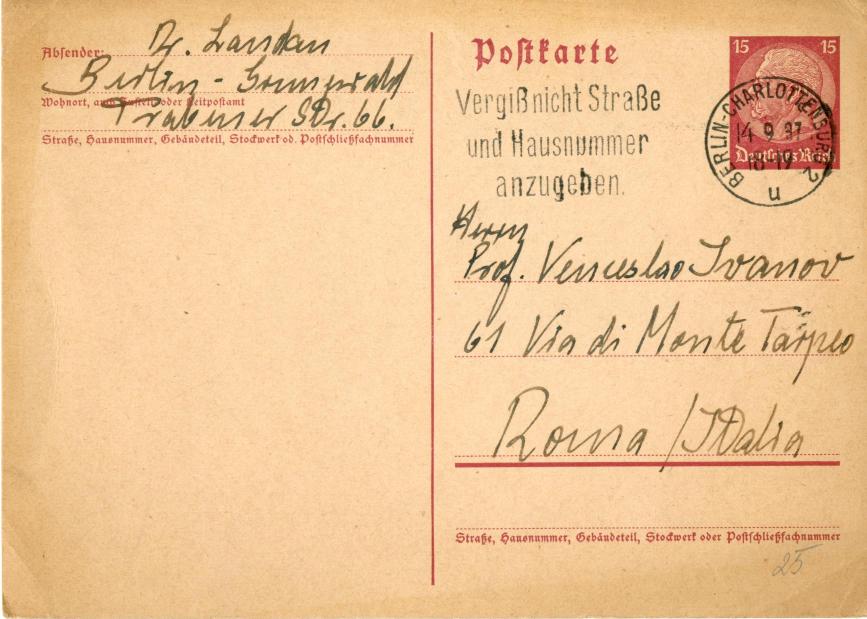 Absender: Dr. Landau
Berlin - Grunewald
Wohnort, auch Zustell- oder Leitpostamt
Trabener Str. 66.
Straße, Hausnummer, Gebäudeteil, Stockwerk od. Postschließfachnummer
Postkarte
15 15
Deutsches Reich
Vergiß nicht Straße
und Hausnummer
anzugeben.
BERLIN-CHARLOTTENBURG 2
14 9 37
u
Herrn
Prof. Venceslao Ivanov
61 Via di Monte Tarpeo
Roma / Italia
Straße, Hausnummer, Gebäudeteil, Stockwerk oder Postschließfachnummer
25